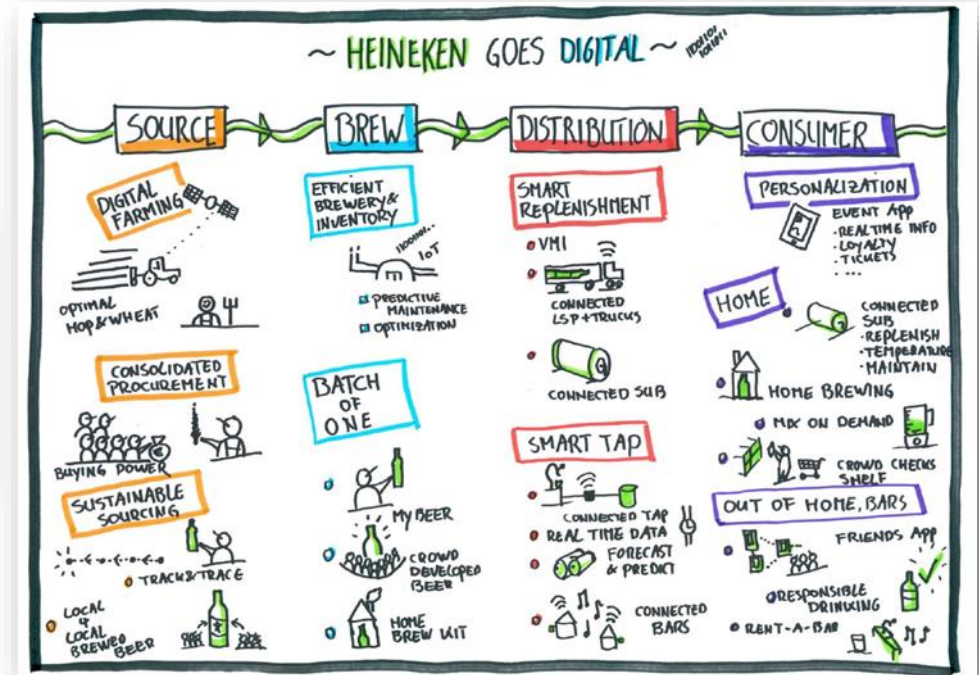 ~ HEINEKEN GOES DIGITAL ~
SOURCE
BREW
DISTRIBUTION
CONSUMER
DIGITAL
FARMING
OPTIMAL
HOP & WHEAT
CONSOLIDATED
PROCUREMENT
BUYING POWER
SUSTAINABLE
SOURCING
TRACK & TRACE
LOCAL
4
LOCAL
BREWED
BEER
EFFICIENT
BREWERY &
INVENTORY
IoT
PREDICTIVE
MAINTENANCE
OPTIMIZATION
BATCH
OF
ONE
MY BEER
CROWD
DEVELOPED
BEER
HOME
BREW KIT
SMART
REPLENISHMENT
VMI
CONNECTED
LSP + TRUCKS
CONNECTED SUB
SMART TAP
CONNECTED TAP
REAL TIME DATA
FORECAST
& PREDICT
CONNECTED
BARS
PERSONALIZATION
EVENT APP
- REALTIME INFO
- LOYALTY
- TICKETS
- ...
HOME
CONNECTED
SUB
- REPLENISH
- TEMPERATURE
- MAINTAIN
HOME BREWING
MIX ON DEMAND
CROWD CHECKS
SHELF
OUT OF HOME, BARS
FRIENDS APP
RESPONSIBLE
DRINKING
RENT-A-BAR